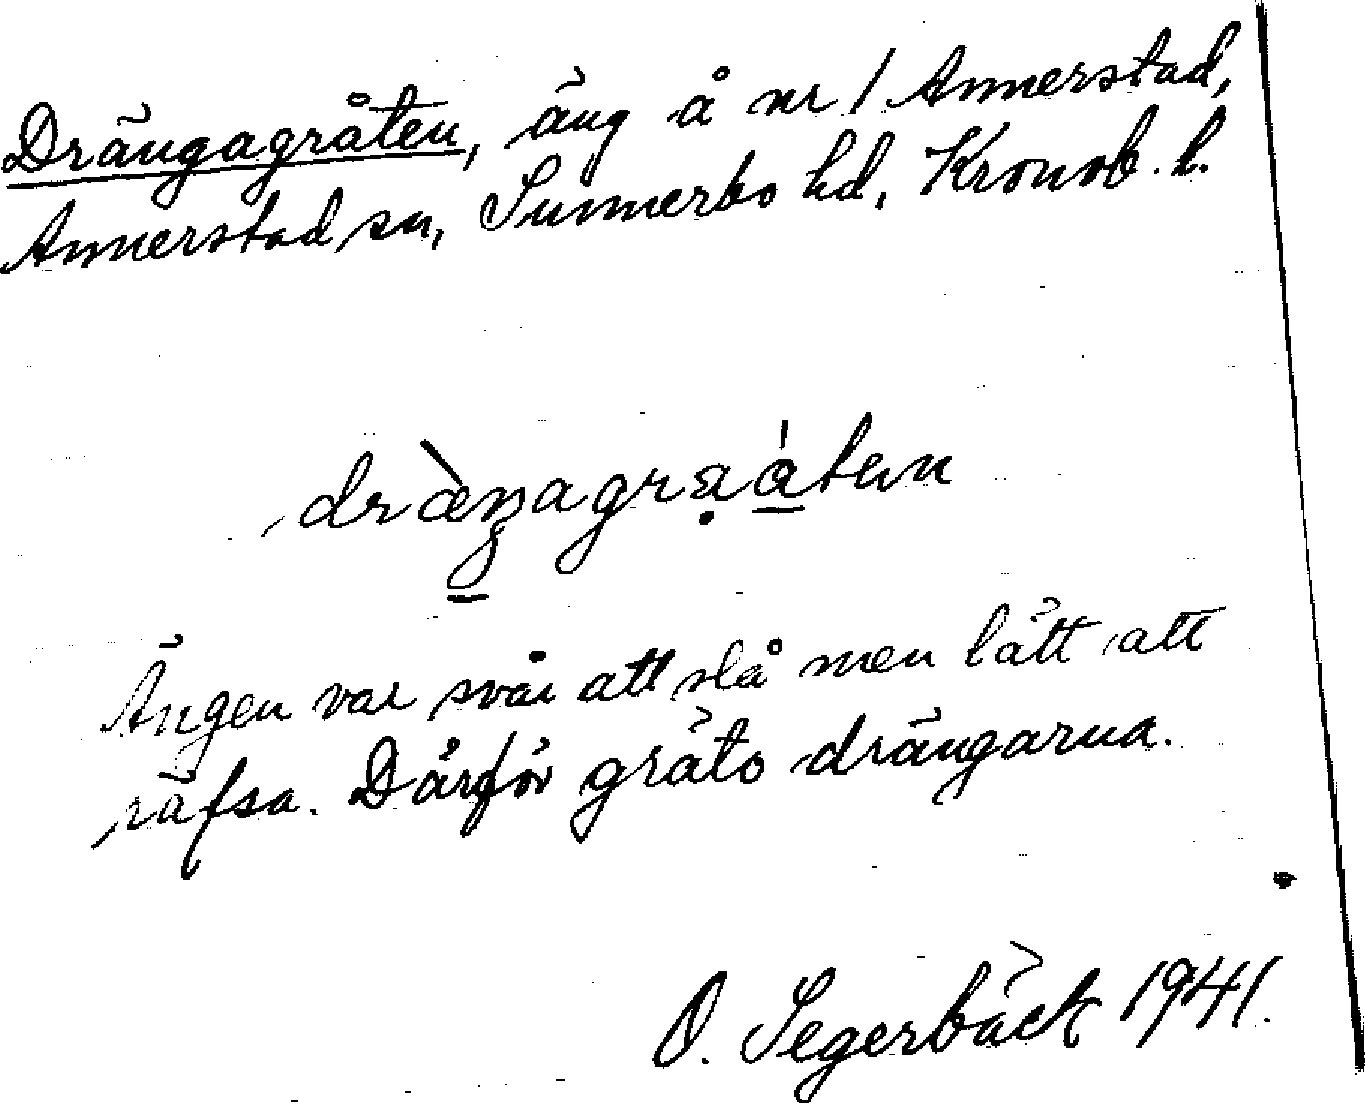 Drängagråten, äng å nr 1 Annerstad,
Annerstad sn, Sunnerbo hd, Kronob. l.
dræ̀ŋagrạåten
Ängen var svår att slå men lätt att
räfsa. Därför gräto drängarna.
O. Segerbäck 1941.